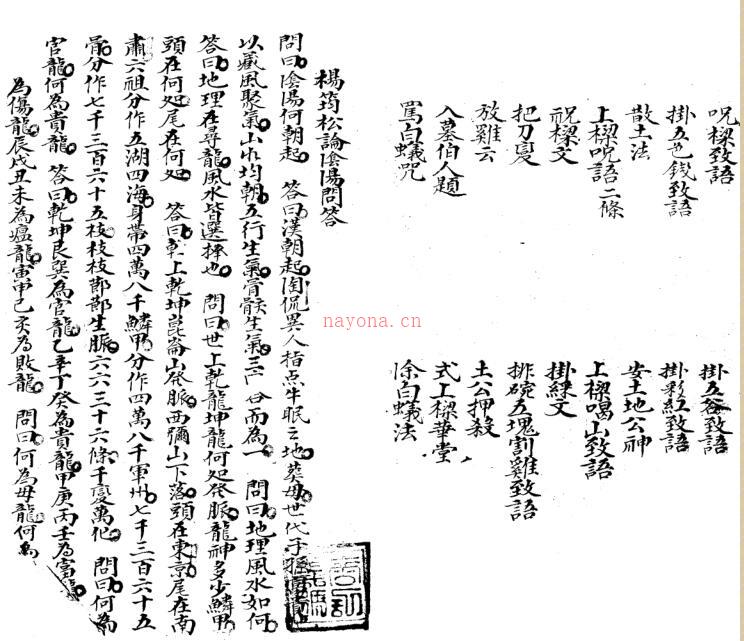 呪樑致語
掛五谷致語
掛五色錢致語
掛彩紅致語
散土法
安土地公神
上樑呪語二條
上樑喝山致語
祝樑文
掛綵文
把刀變
排碗五塊割雞致語
放雞云
土公押殺
入墓伯人題
式上樑華堂
罵白蟻咒
除白蟻法
楊筠松論陰陽問答
問曰陰陽何朝起 答曰漢朝起陶侃異人指点牛眠之地葬母世代子孫
以藏風聚氣山水均朝五行生氣骨骸生氣三 合而為一 問曰地理風水如何
答曰地理在尋龍風水皆選擇也 問曰世上乾龍坤龍何処發脈龍神多少鱗甲
頭在何処尾在何処 答曰乾上乾坤崑崙山發脈西彌山下落頭在東京尾在南
肅六祖分作五湖四海身帶四萬八千鱗甲分作四萬八千軍州七千三百六十五
骨分作七千三百六十五枝枝枝節節生脈六六三十六條千變萬化 問曰何為
官龍何為貴龍 答曰乾坤艮巽為官龍乙辛丁癸為貴龍甲庚丙壬為富龍
為傷龍辰戌丑未為瘟龍寅申巳亥為敗龍 問曰何為母龍何為
nayona.cn